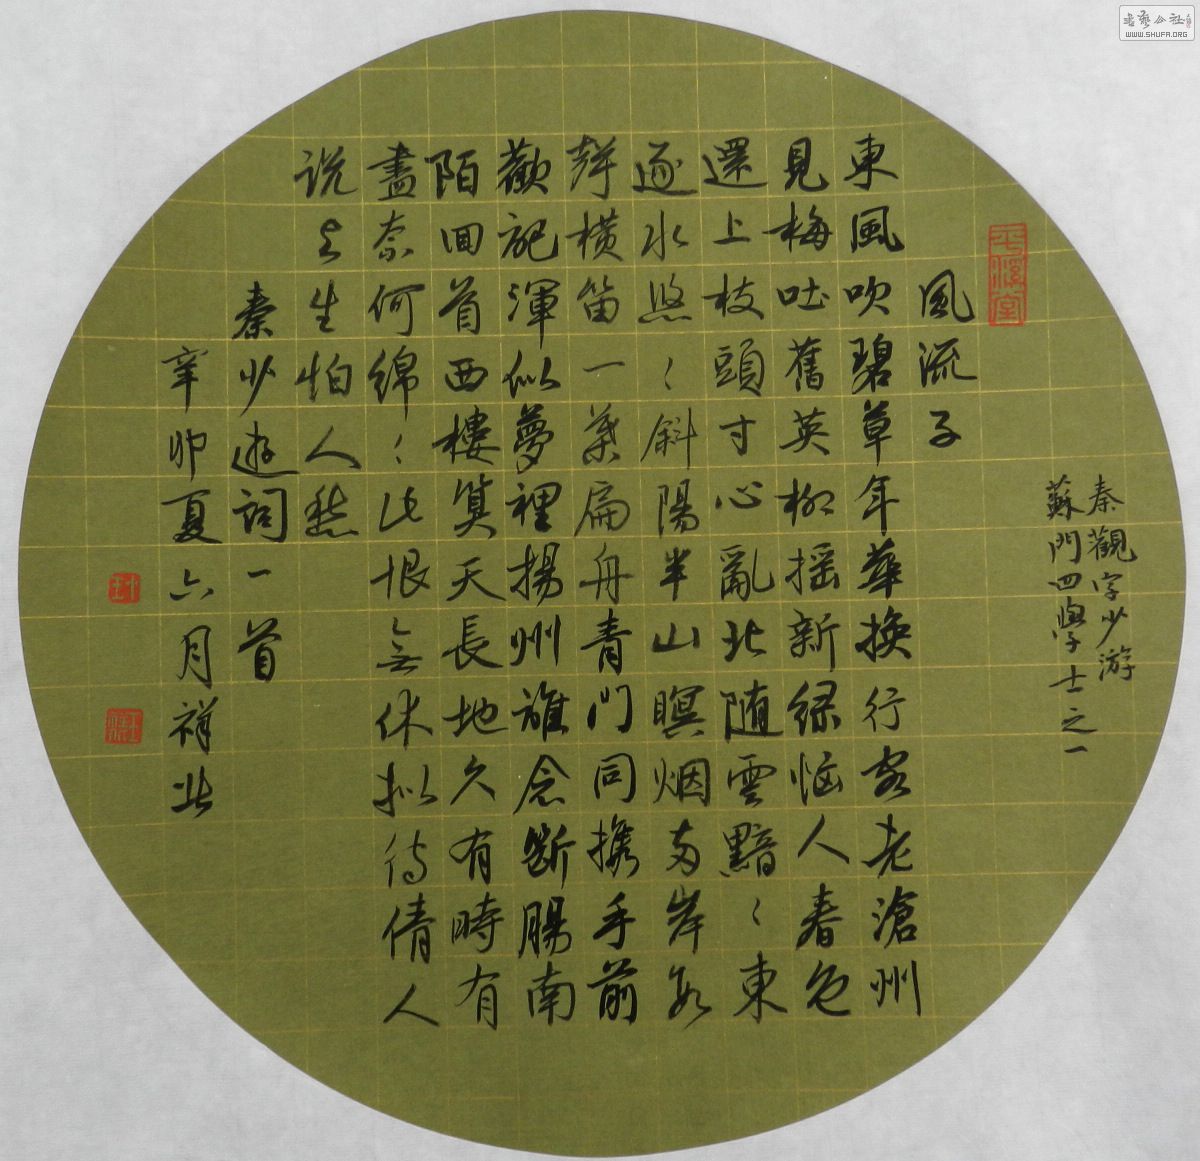 秦觀字少游
蘇門四學士之一
風流子
東風吹碧草年華換行客老滄州
見梅吐舊英柳摇新綠惱人春色
還上枝頭寸心亂北随雲黯〻東
逐水悠〻斜陽半山暝烟两岸數
聲横笛一葉扁舟青門同携手前
歡記渾似夢裡揚州誰念斷腸南
陌回首西樓算天長地久有時有
盡奈何綿〻此恨無休拟待倩人
説与生怕人愁
秦少遊詞一首
辛卯夏六月祥
书艺公社
WWW.SHUFA.ORG